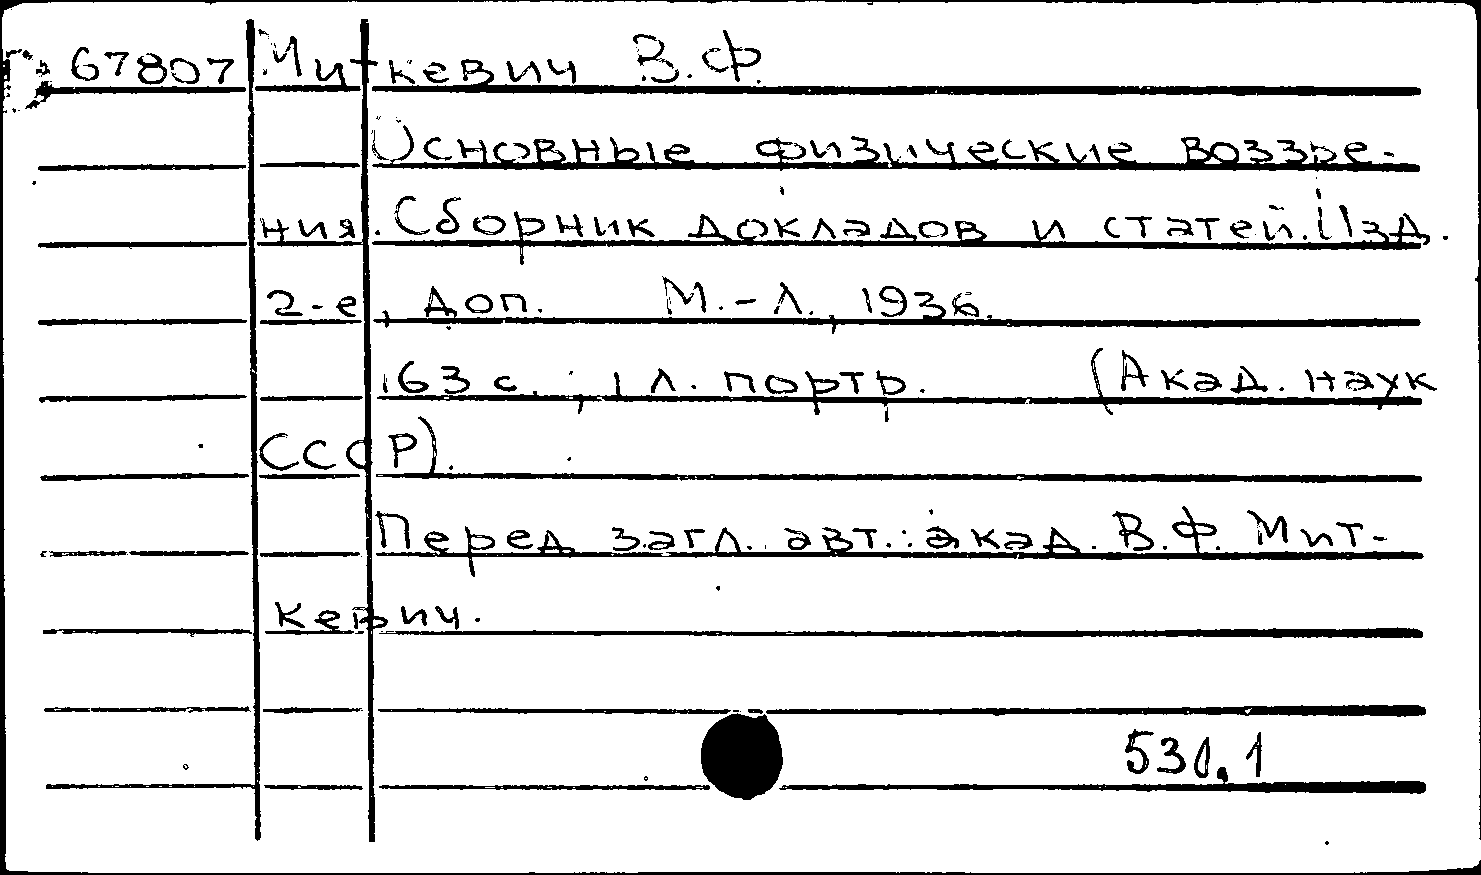 67807 Миткевич В.Ф.
Основные физические воззре-
ния. Сборник докладов и статей. Изд.
2-е, доп. М.-Л., 1936.
163 с.; 1 л. портр. (Акад. наук
СССР).
Перед загл. авт.: акад. В.Ф. Мит-
кевич.
530.1